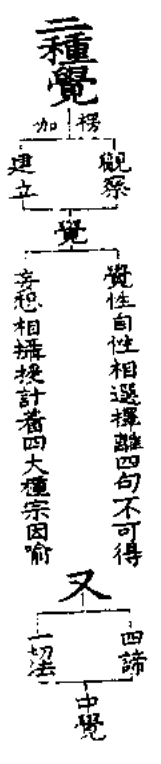 二種覺
楞加
觀察
建立
覺
覺性自性相選擇離四句不可得
妄想相攝授計著四大種宗因喻
又
四諦
一切法
中覺